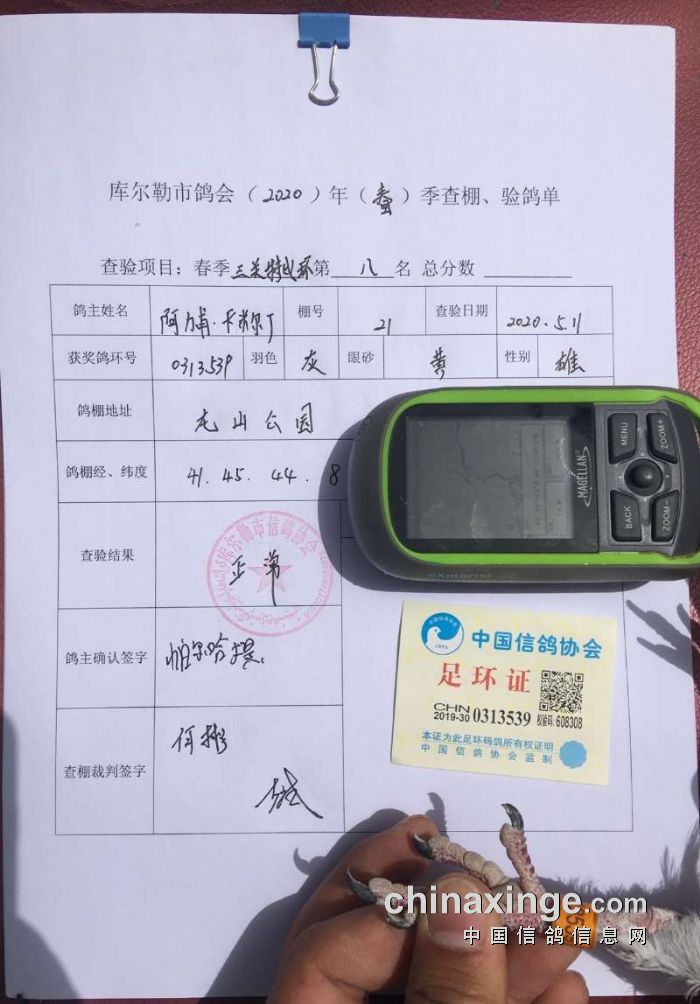 库尔勒市鸽会（2020）年（春）季查棚、验鸽单
查验项目：春季三关特战环第 八 名 总分数
鸽主姓名 棚号 21 查验日期 2020.5.11
获奖鸽环号 0313539 羽色 灰 眼砂 黄 性别 雄
鸽棚地址 公园
鸽棚经、纬度 41.45.44.8
查验结果 正常
库尔勒市信鸽协会
鸽主确认签字
查棚裁判签字
MAGELLAN
MENU
ZOOM+
BACK
ZOOM-
eXplorist GC
中国信鸽协会
足环证
CHN
2019-30 0313539 校验码: 608308
本证为此足环码鸽所有权证明
中国信鸽协会监制
chinaxinge.com
中国信鸽信息网